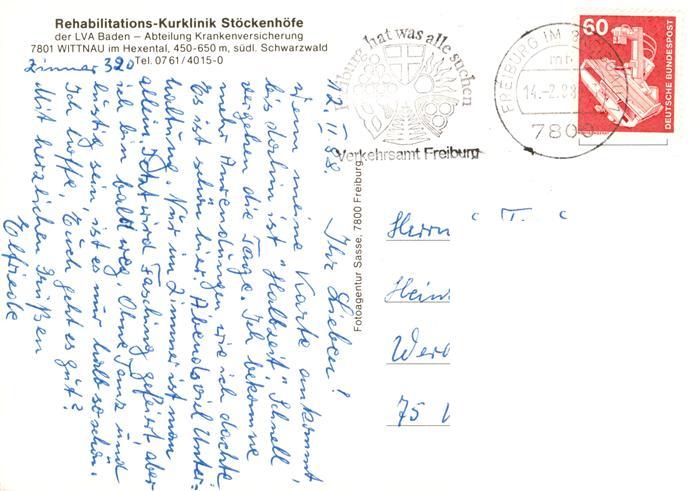 Rehabilitations-Kurklinik Stöckenhöfe
der LVA Baden – Abteilung Krankenversicherung
7801 WITTNAU im Hexental, 450-650 m, südl. Schwarzwald
Tel. 07 61 / 40 15-0
Zimmer 320
12. II. 88
Ihr Lieben!
Wenn meine Karte ankommt,
bis dahin ist "Halbzeit". Schnell
vergehen die Tage. Ich bekomme
mehr Anwendungen wie ich dachte
Es ist schön hier. Abends viel Unter=
haltung. Nur im Zimmer ist man
allein. Jetzt wird Fasching gefeiert aber
ich bin bald weg. Ohne ganz und
lustig sein, ist es nur halb so schön.
Ich hoffe, Euch geht es gut?
Mit herzlichen Grüßen
Elfriede
Fotoagentur Sasse, 7800 Freiburg
Freiburg hat was alle suchen
Verkehrsamt Freiburg
FREIBURG IM
mb
14.-2.88
7800
60
DEUTSCHE BUNDESPOST
Herrn
75